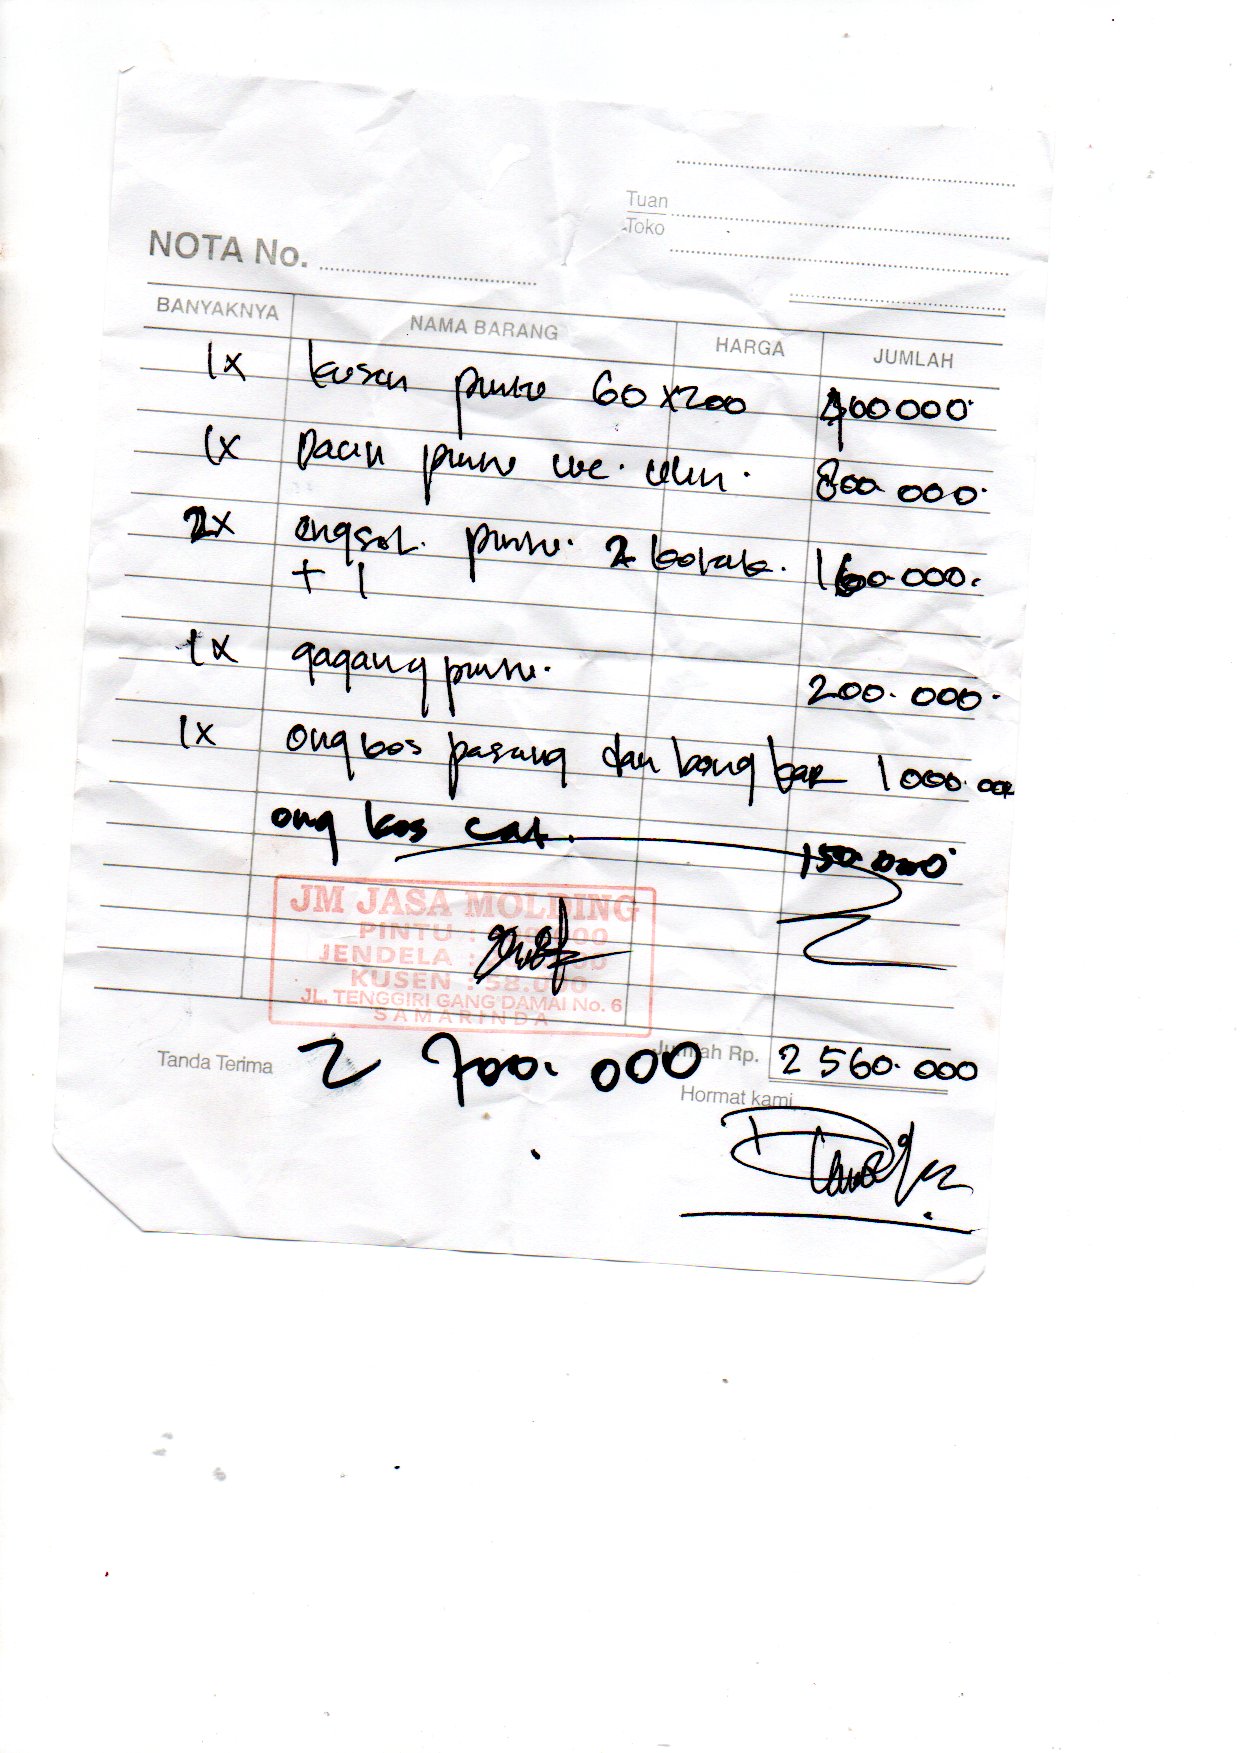 Tuan
Toko
NOTA No.
BANYAKNYA NAMA BARANG HARGA JUMLAH
1x kusen pintu 60x200 400000
1x Daun pintu wc. ulin. 800.000
2x engsel. pintu. 2 kotak. 160.000.
+ 1
1x gagang pintu. 200.000
1x ongkos pasang dan bongkar 1000.000
ongkos cat. 150.000
JM JASA MOLDING
PINTU :
JENDELA :
KUSEN : 58.000
JL. TENGGIRI GANG DAMAI No. 6
SAMARINDA
Tanda Terima 2 700.000 Jumlah Rp. 2 560.000
Hormat kami